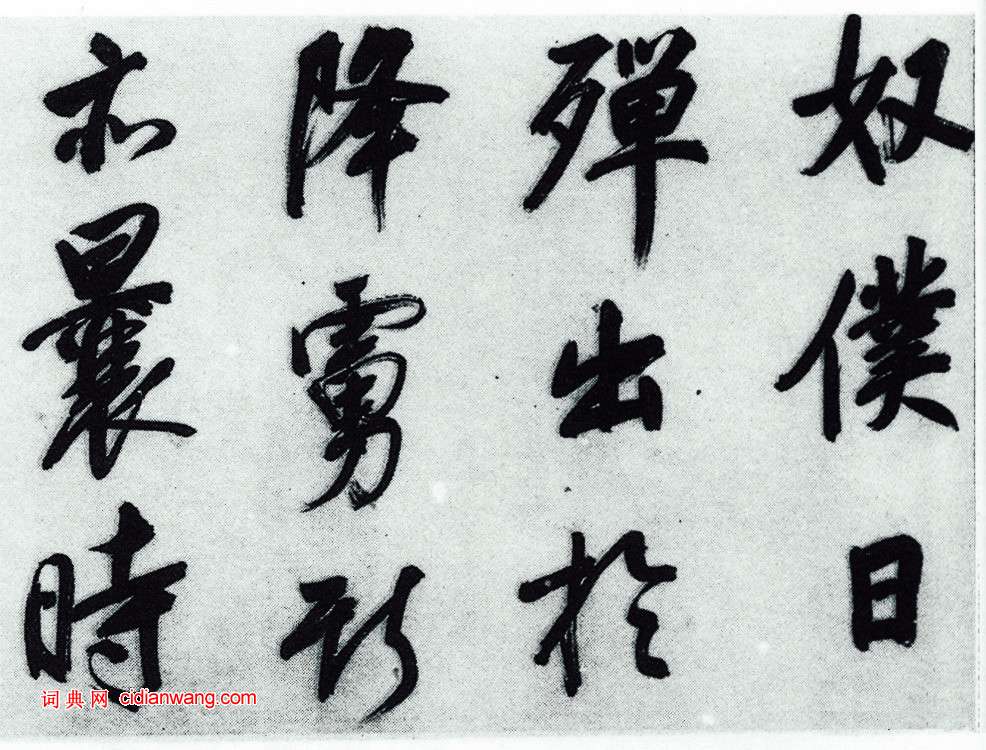 奴僕日
殫出於
降虜
亦曩時
词典网 cidianwang.com